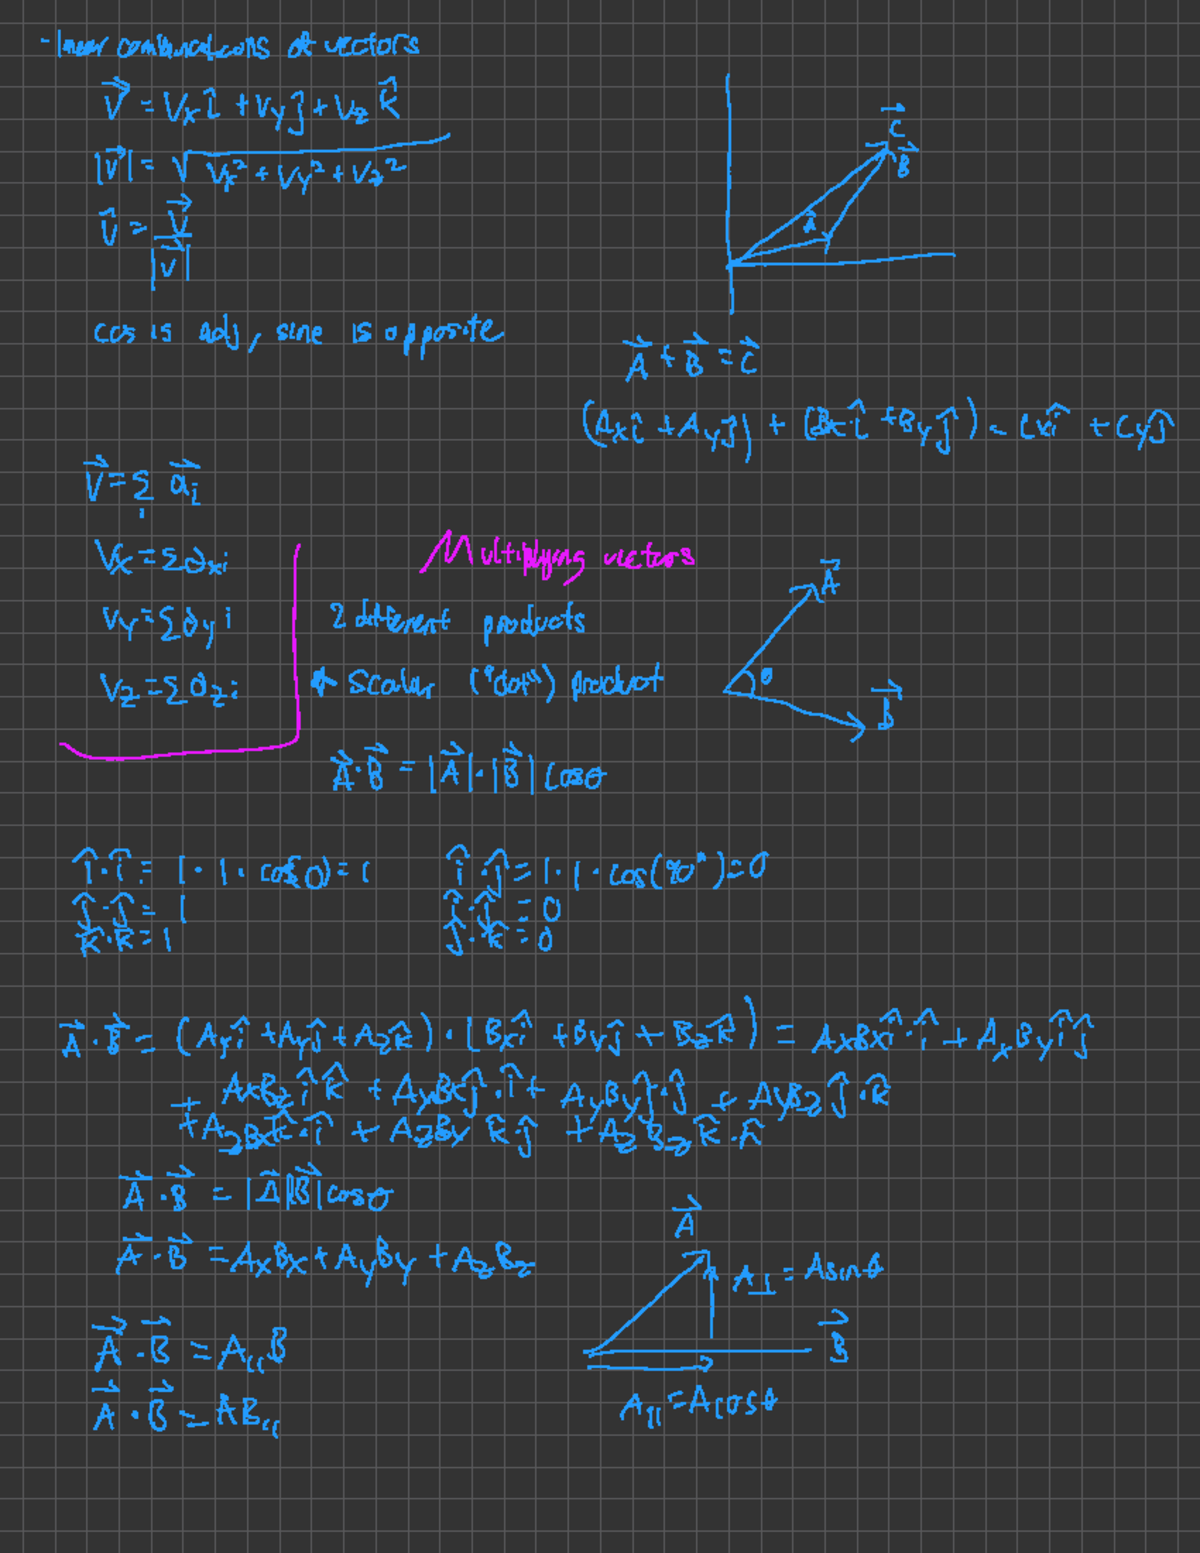 - linear combinations of vectors
V⃗ = Vₓî + Vyĵ + V_z k̂
|V⃗| = √(Vₓ² + Vy² + V_z²)
v̂ = V⃗ / |V⃗|
cos is adj, sine is opposite
C⃗
B⃗
A⃗
A⃗ + B⃗ = C⃗
(Aₓî + Ayĵ) + (Bₓî + Byĵ) = Cₓî + Cyĵ
V⃗ = Σᵢ a⃗ᵢ
Vₓ = Σaₓᵢ
Vy = Σayᵢ
V_z = Σa_zᵢ
Multiplying vectors
2 different products
* scalar ("dot") product
A⃗ · B⃗ = |A⃗| · |B⃗| cosθ
A⃗
θ
B⃗
î · î = 1 · 1 · cos(0) = 1
ĵ · ĵ = 1
k̂ · k̂ = 1
î · ĵ = 1 · 1 · cos(90°) = 0
= 0
ĵ · k̂ = 0
A⃗ · B⃗ = (Aₓî + Ayĵ + A_z k̂) · (Bₓî + Byĵ + B_z k̂) = AₓBₓ î · î + AₓBy î ĵ
+ AₓB_z î k̂ + AyBₓ ĵ · î + AyBy ĵ · ĵ + AyB_z ĵ · k̂
+ A_zBₓ k̂ · î + A_zBy k̂ · ĵ + A_zB_z k̂ · k̂
A⃗ · B⃗ = |A⃗||B⃗| cosθ
A⃗ · B⃗ = AₓBₓ + AyBy + A_zB_z
A⃗ · B⃗ = A∥B
A⃗ · B⃗ = AB∥
A⃗
A⊥ = Asinθ
B⃗
A∥ = Acosθ